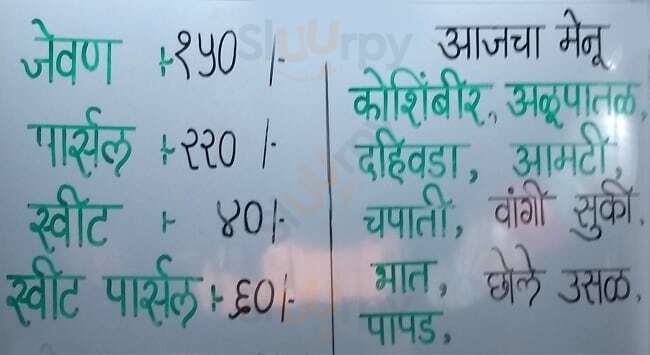 जेवण :- १५० /-
पार्सल :- २२० /-
स्वीट :- ४० /-
स्वीट पार्सल :- ६०/-
आजचा मेनू
कोशिंबीर, अळूपातळ,
दहिवडा, आमटी,
चपाती, वांगी सुकी.
भात, छोले उसळ,
पापड,
Sluurpy